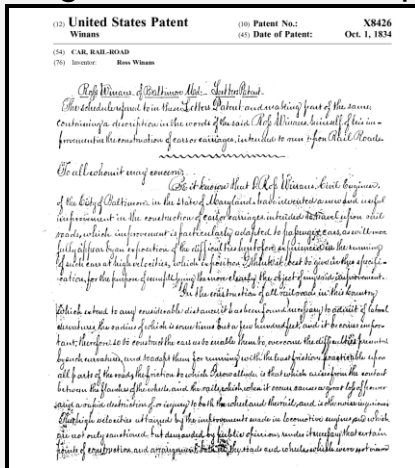 (12) United States Patent
Winans
(10) Patent No.: X8426
(45) Date of Patent: Oct. 1, 1834
(54) CAR, RAIL-ROAD
(76) Inventor: Ross Winans
Ross Winans, of Baltimore Md. Letters Patent.
The schedule refered to in these Letters Patent and making part of the same,
containing a description in the words of the said Ross Winans himself of his im-
provement in the construction of cars or carriages, intended to run upon Rail Roads.
To all whom it may concern:
Be it known that I Ross Winans, Civil Engineer,
of the City of Baltimore, in the state of Maryland, have invented a new and useful
improvement in the construction of cars or carriages intended to travel upon rail
roads, which improvement is particularly adapted to passenger cars, as will more
fully appear by an exposition of the difficulties heretofore experienced in the running
of such cars at high velocities, which exposition I think it best to give in this specifi-
cation, for the purpose of exemplifying the more clearly the object of my said improvement.
In the construction of all rail roads in this country
which extend to any considerable distance it has been found necessary to admit of lateral
curvatures, the radius of which is sometimes but a few hundred feet, and it becomes impor-
tant, therefore so to construct the cars as to enable them to overcome the difficulties presented
by such curvatures, and to adapt them for running with the least friction practicable upon
all parts of the road, the friction to which I here allude is that which arises from the contact
between the flanches of the wheels, and the rails, which when it occurs causes a great loss of power
and a rapid destruction of or injury to both the wheel and the rail, and is otherwise injurious
The high velocities attained by the improvements made in locomotive engines and which
are not only sanctioned, but demanded by public opinion render it necessary that certain
points of construction and arrangement both in the roads and wheels which were not